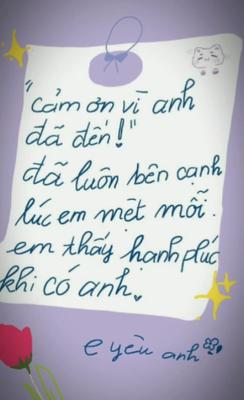 "Cảm ơn vì anh
đã đến!"
đã luôn bên cạnh
lúc em mệt mỗi.
em thấy hạnh phúc
khi có anh.
e yêu anh